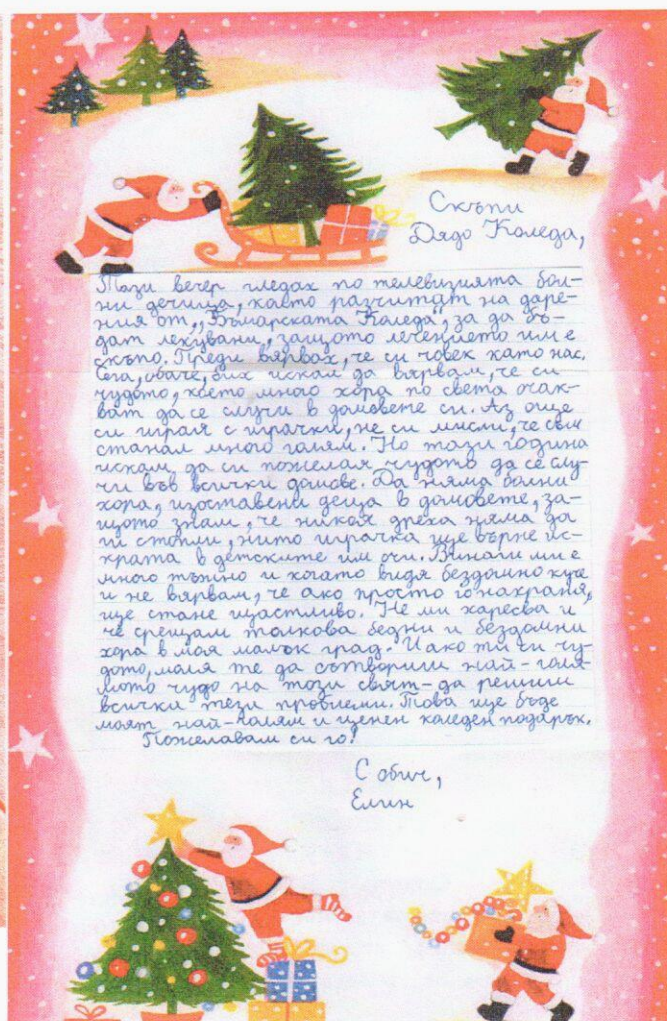 Скъпи
Дядо Коледа,
Тази вечер гледах по телевизията бол-
ни дечица, които разчитат на даре-
ния от „Българската Коледа“, за да бъ-
дат лекувани, защото лечението им е
скъпо. Преди вярвах, че си човек като нас.
Сега, обаче, бих искал да вярвам, че си
чудото, което много хора по света очак-
ват да се случи в домовете си. Аз още
си играя с играчки, не си мисли, че съм
станал много голям. Но тази година
искам да си пожелая чудото да се слу-
чи във всички домове. Да няма болни
хора, изоставени деца в домовете, за-
щото знам, че никоя дреха няма да
ги стопли, нито играчка ще върне ис-
крата в детските им очи. Винаги ми е
много тъжно и когато видя бездомно куче
и не вярвам, че ако просто го нахраня,
ще стане щастливо. Не ми харесва и
че срещам толкова бедни и бездомни
хора в моя малък град. И ако ти си чу-
дото, моля те да сътвориш най-голя-
мото чудо на този свят-да решиш
всички тези проблеми. Това ще бъде
моят най-голям и ценен коледен подарък.
Пожелавам си го!
С обич,
Елин